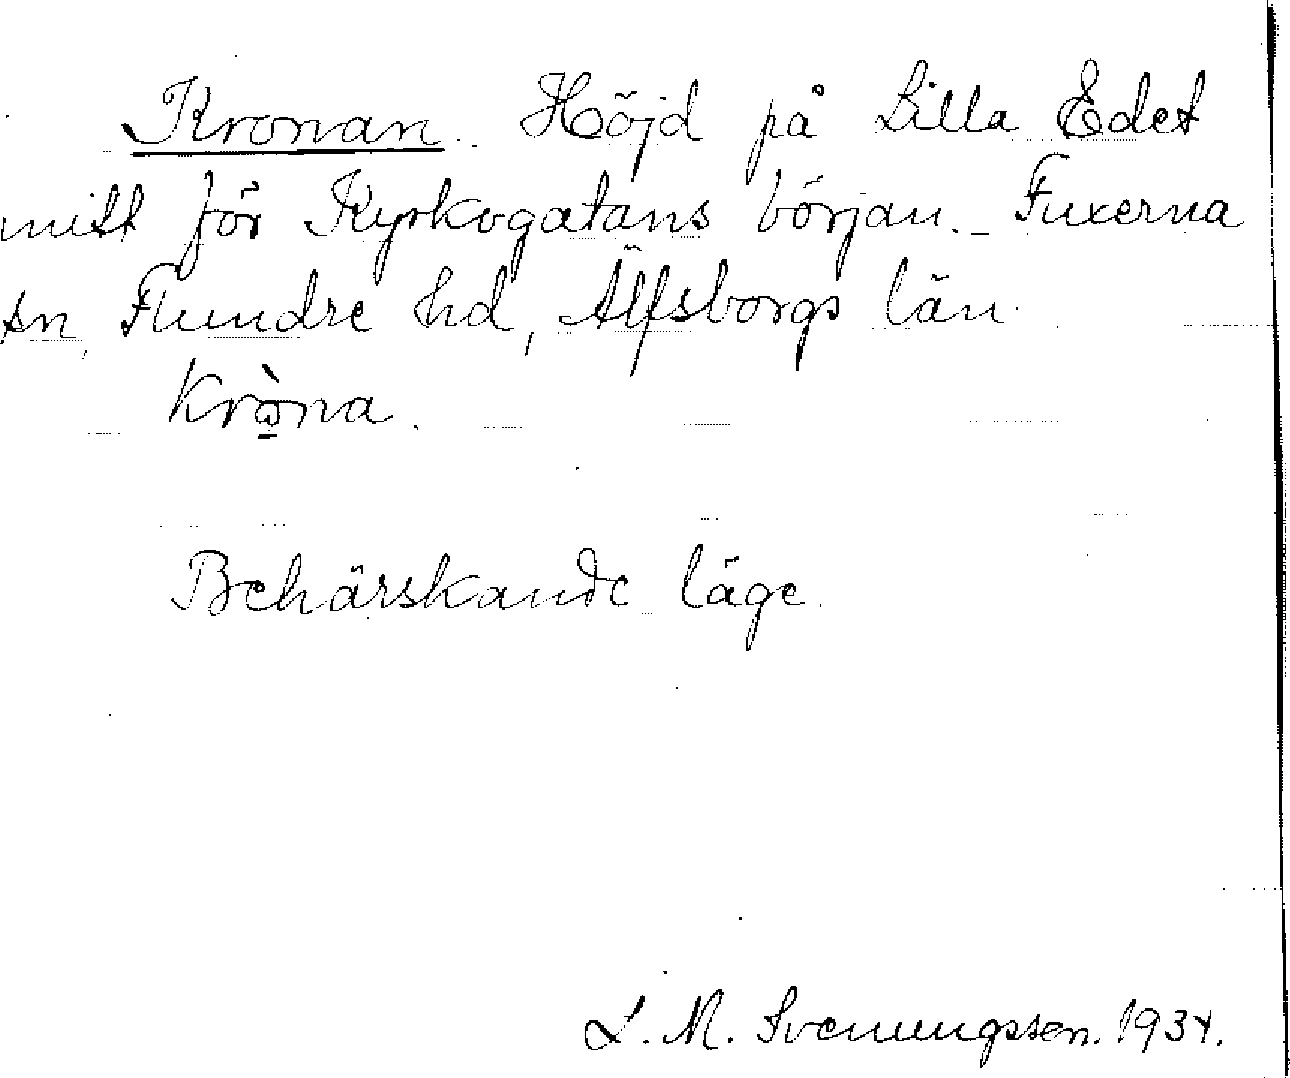 Kronan. Höjd på Lilla Edet
mitt för Kyrkogatans början. Fuxerna
sn, Flundre hd, Älfsborgs län.
Krò̱na.
Behärskande läge.
L. M. Svenungsson. 1934.